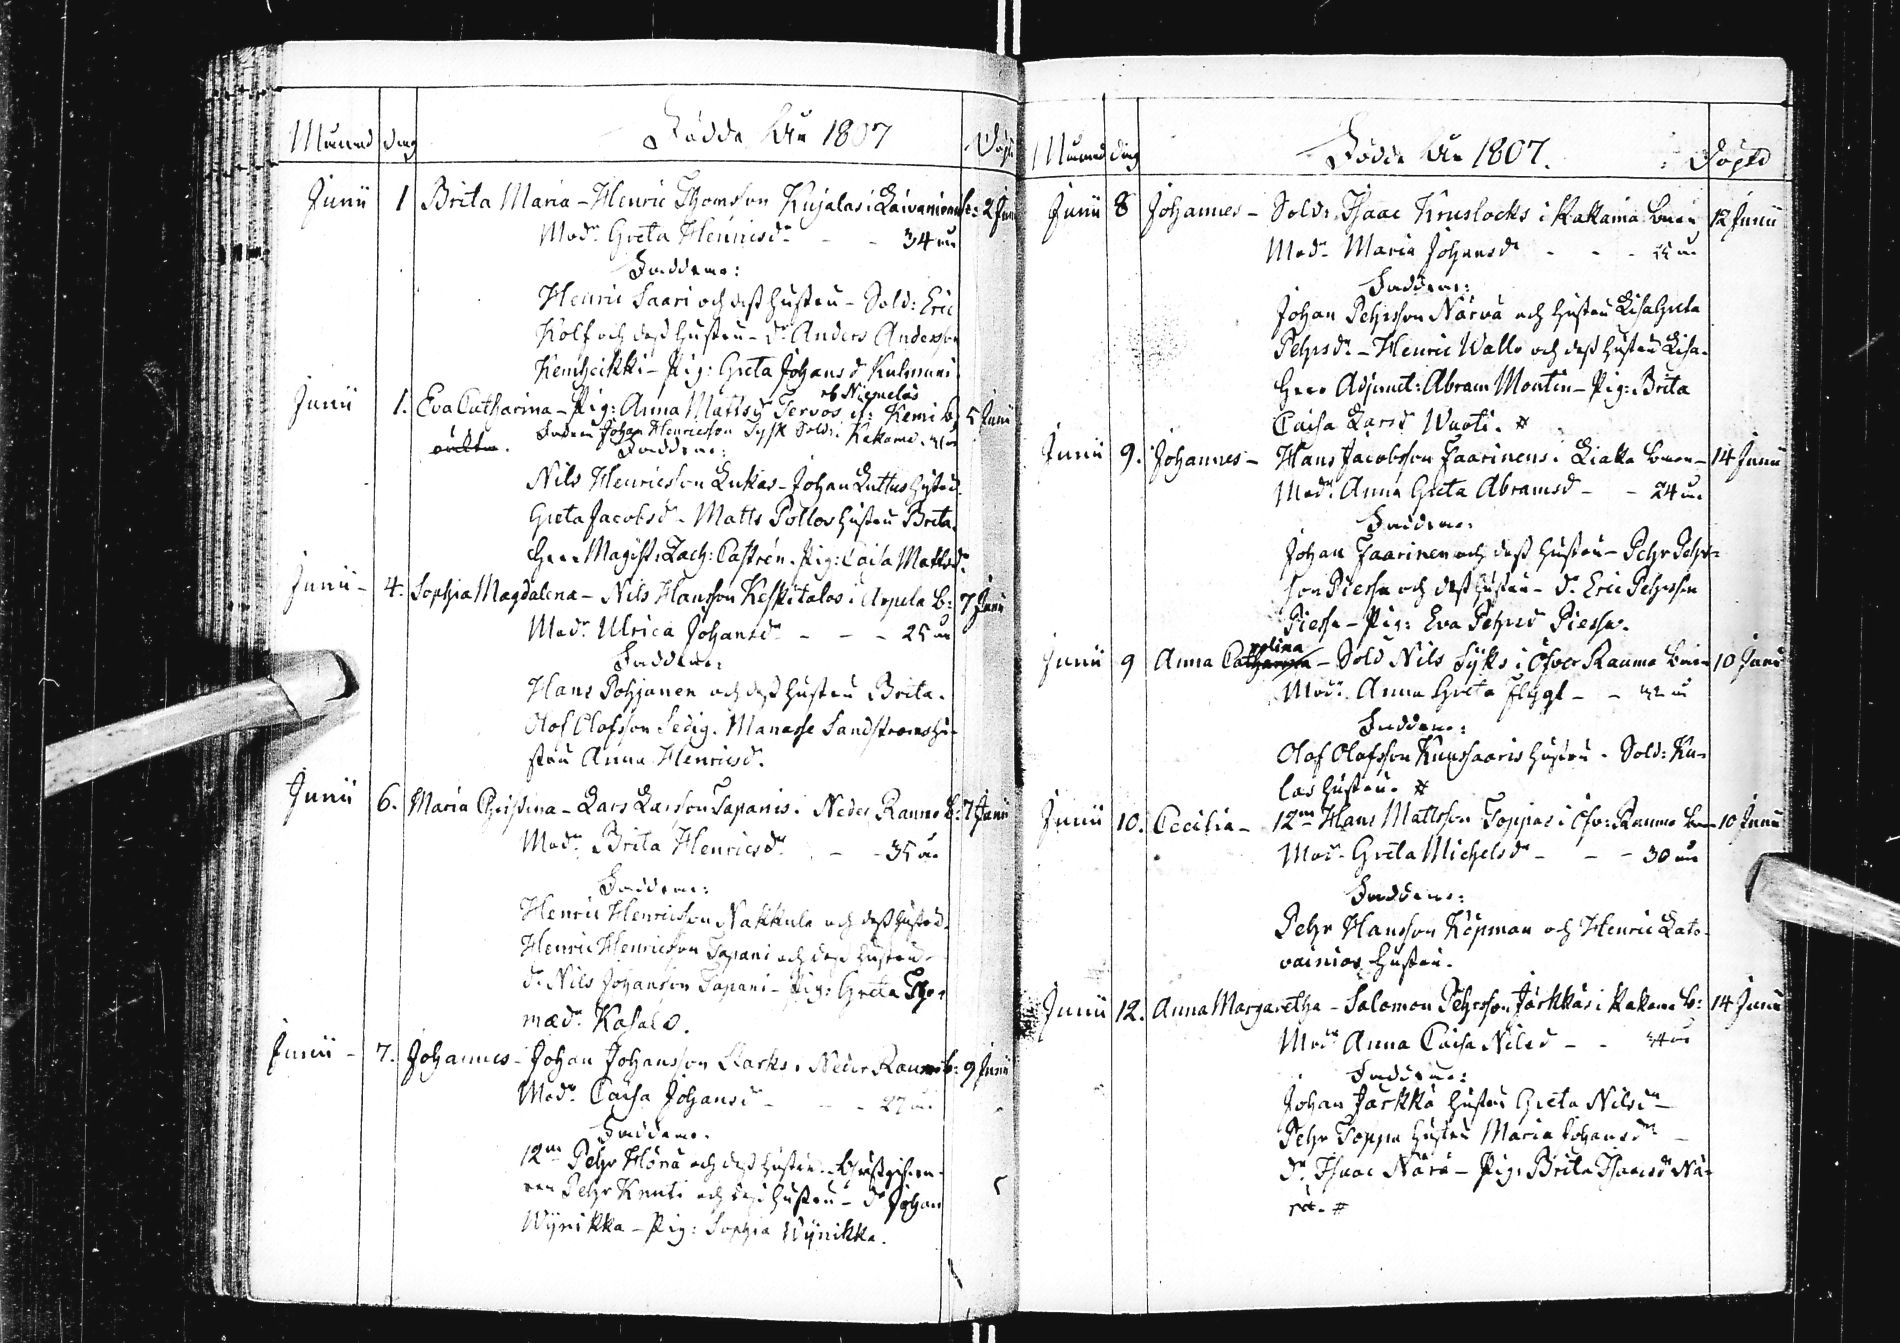 Månad dag Födde År 1807 Döpte
Junii 1 Brita Maria – Henric Thomson Kujalas i Laivaniemi b: 2 Junii
Modr. Greta Henricsdr - - 34 år
Faddrar:
Henric Saari och dess hustru – Sold: Eric
Kolf och dess hustru – dr. Anders Anderson
Kemheikki – Pig: Greta Johansd Kulmuni
Junii 1. Eva Catharina – Pig: Anna Mattsd Tervos if: Kemi b. 5 Junii
af Niemelas
oäkta. Fadren Johan Henricsson Sysk Sold: i Kakamo
Faddrar:
Nils Henricsson Lukas – Johan Luttus hustru
Greta Jacobsd – Matts Pollos hustru Brita.
Herr Magist: Zach: Castrén. Pig: Caisa Mattsdr.
Junii – 4. Sophia Magdalena – Nils Hansson Keskitalos i Arpela b: 7 Junii
Modr. Ulrica Johansdr - - - 25 år
Faddrar:
Hans Pohjanen och dess hustru Brita.
Olof Olofsson Sedig. Manasse Sandströms hu-
stru Anna Henricsd.
Junii 6. Maria Christina – Lars Larsson Tapanis i Neder Raumo b: 7 Junii
Modr. Brita Henricsdr - - 35 år
Faddrar:
Henric Henricsson Nakkula och dess hustru.
Henric Henricsson Tapani och dess hustru.
dr. Nils Johansson Tapani – Pig: Greta Tho-
mædr. Kosalo.
Junii – 7. Johannes – Johan Johansson Karks i Neder Raumo b: 9 Junii
Modr. Caisa Johansd - - - 27 år
Faddrar.
12mn Pehr Hörä och dess hustru –
Pehr Knuti och dess hustru – dr Johan
Wÿnikka – Pig: Sophia Wÿnikka.
Månad dag Födde År 1807. Döpte
Junii 8 Johannes – Sold: Isaac Kruslocks i Kakama Byen 12 Junii
Modr. Maria Johansdr - - -
Faddrar:
Johan Pehrsson Närvä och hustru Lisa Greta
Pehrsdr. – Henric Wallo och dess hustru Lisa.
Herr Adjunct: Abram Montin – Pig: Brita
Caisa Larsd Wuoti. #
Junii 9. Johannes – Hans Jacobsson Jaarinens i Liakka Byen – 14 Junii
Modr. Anna Greta Abramsd - - 24 år
Faddrar:
Johan Jaarinen och dess hustru – Pehr Pehrs-
son Piessa och dess hustru – dr. Eric Pehrsson
Piessa – Pig: Eva Pehrsd Piessa.
Junii 9 Anna Catharina – Sold Nils Sÿks i Öfver Raumo Byen 10 Junii
rolina
Modr. Anna Greta Flygt - -
Faddrar:
Olof Olofsson Kuusaaris hustru – Sold: Ku-
las hustru. #
Junii 10. Cecilia – 12mn Hans Mattsson Toppas i Öfv: Raumo by – 10 Junii
Modr. Greta Michelsdr - - - 30 år
Faddrar:
Pehr Hansson Köpman och Henric Lato-
vainios hustru.
Junii 12. Anna Margaretha – Salomon Pehrsson Järkkäs i Kakama b: 14 Junii
Modr Anna Caisa Nilsd - - 34 år
Faddrar:
Johan Järkkä hustru Greta Nilsdr –
Pehr Toppa hustru Maria Johansdr –
dr. Isaac Närä – Pig: Brita Isaacsdr Nä-
rä. #